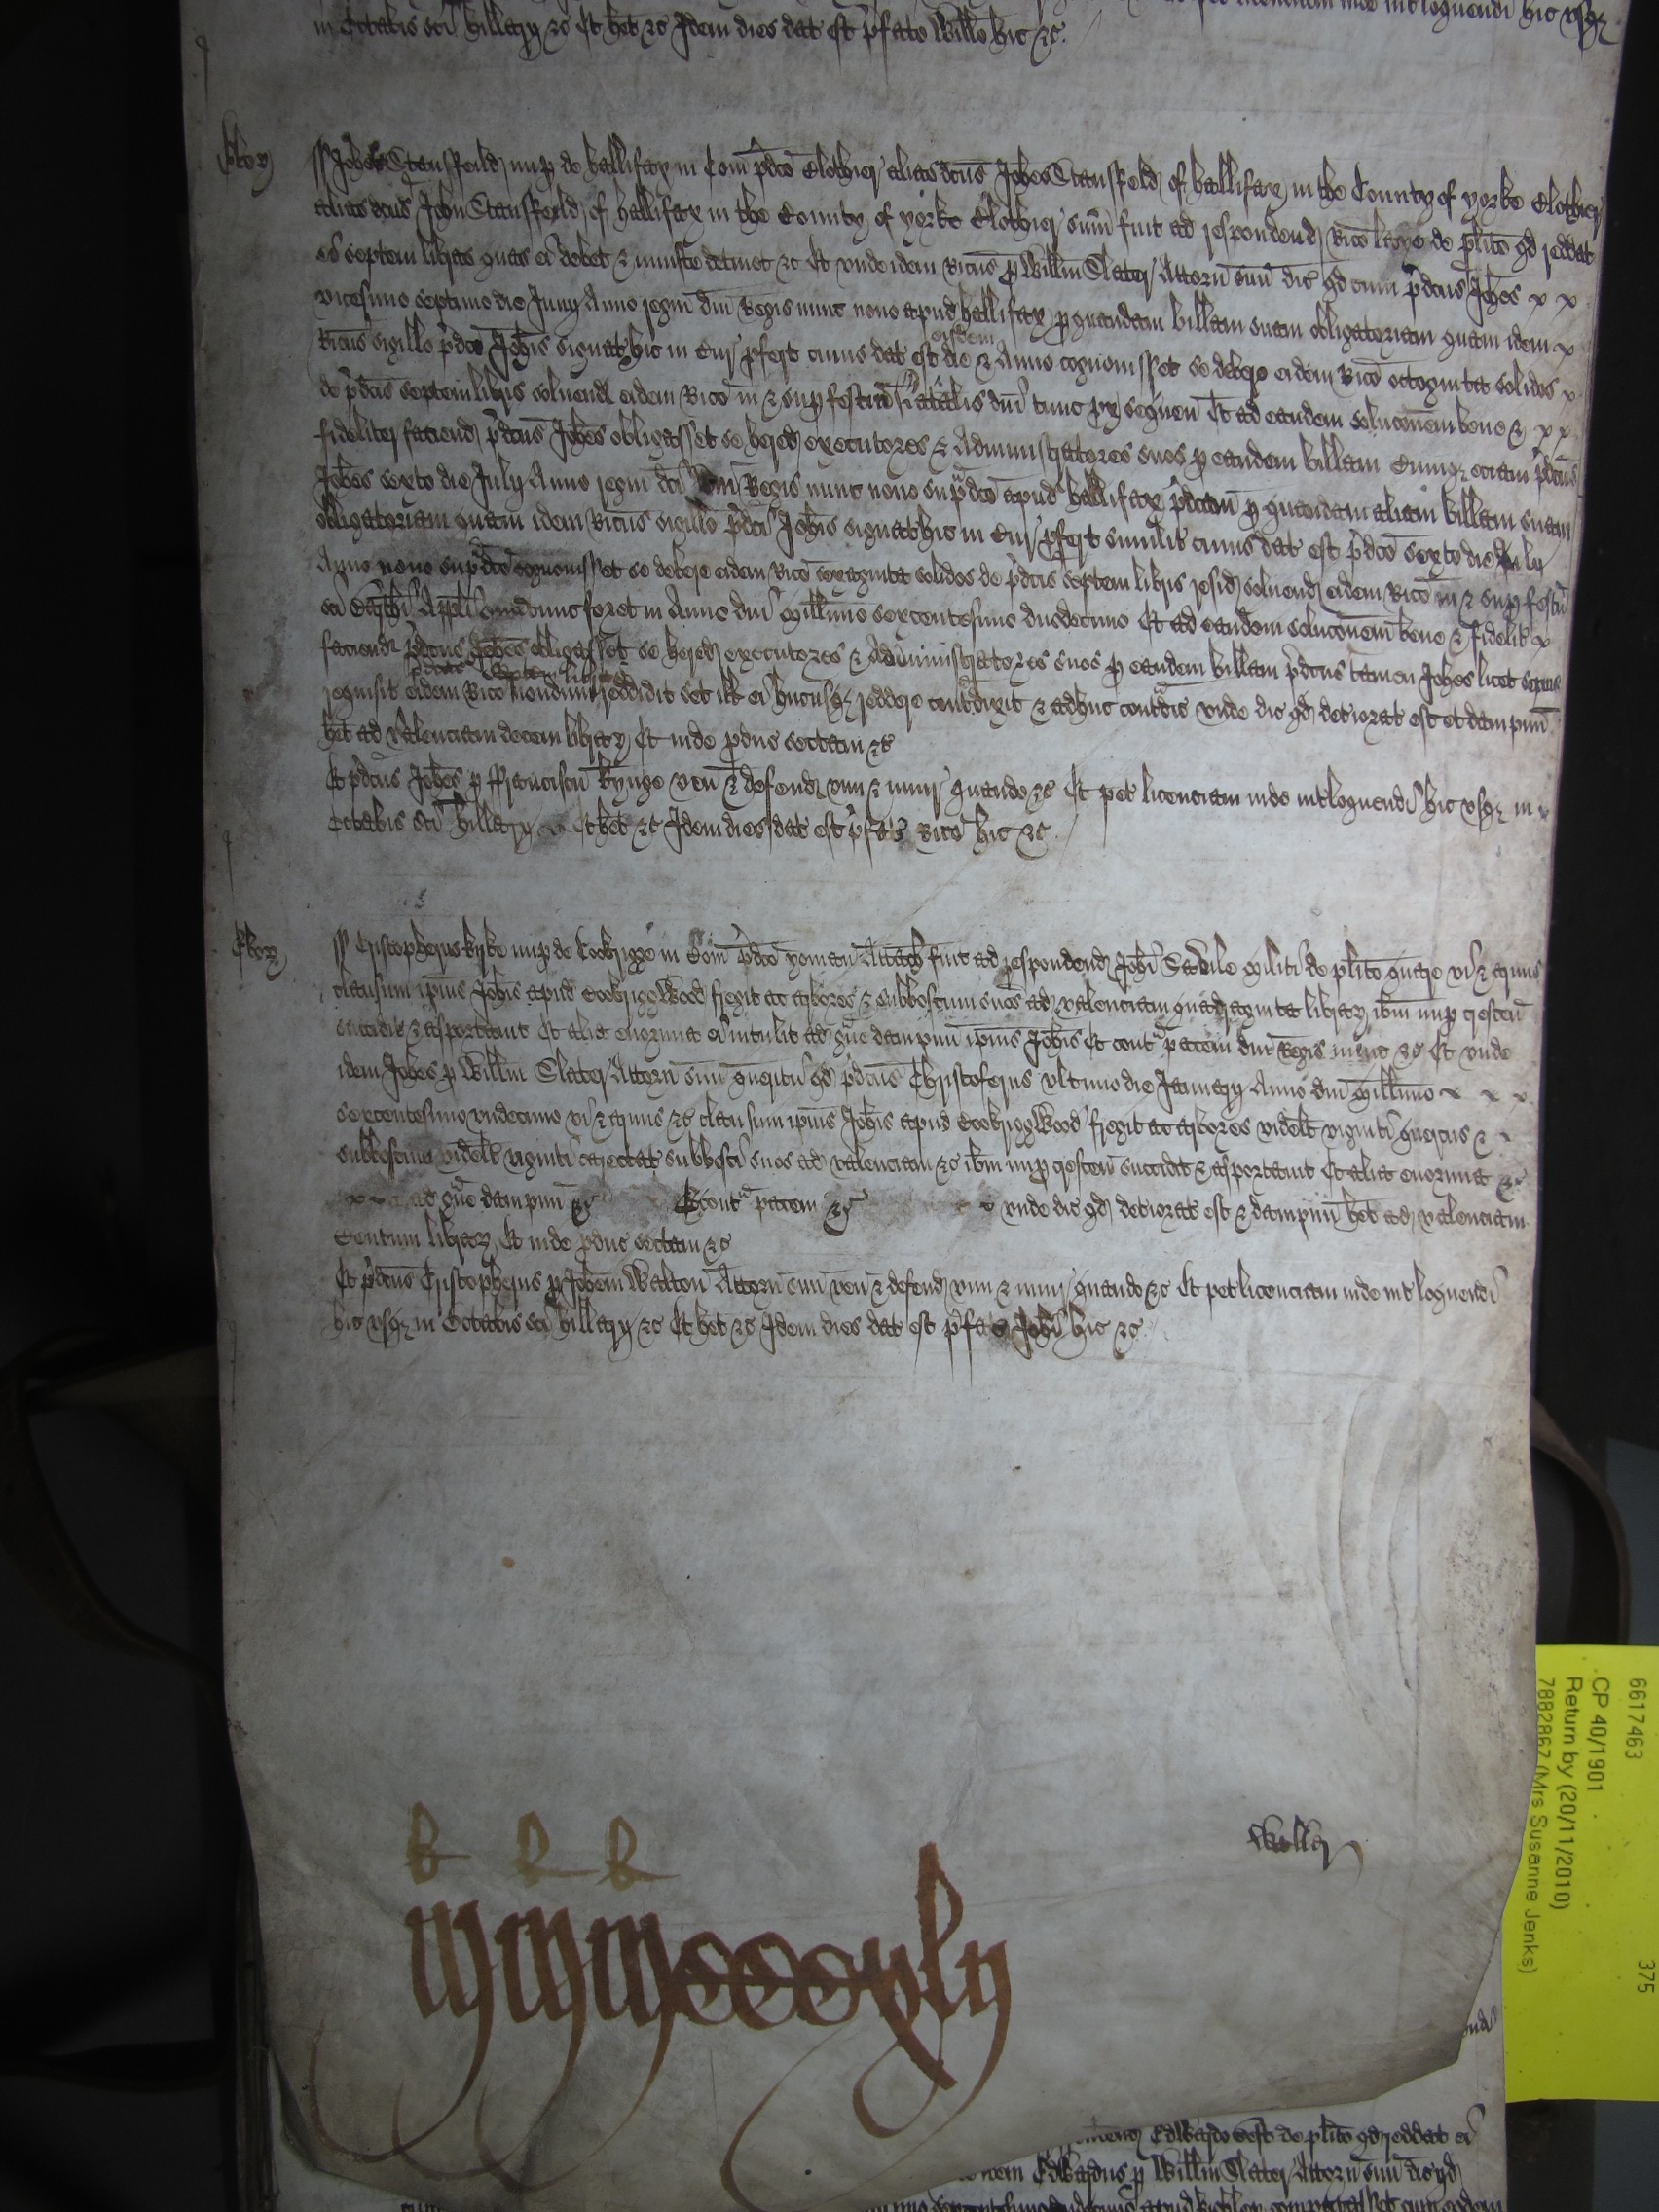 in Octabis sci Hillarij &c Et het &c Idem dies dat est pfato Willo hic &c.
inde intloquendi hic usqz
Ebor
ss Johes Stansfeild nup de Hallifax in Com pdco Clothier alias dcus Johes Stansfeld of Hallifax in the County of yorke Clothier
alias dcus John Stansfeild of Hallifax in the County of yorke Clothier sum fuit ad respondend Rico de plito qd reddat
ei septem libras quas ei debet & iniuste detinet &c Et unde idem Ricus p Willm Slater Attorn suu dic qd cum pdcus Johes x x
vicesimo septimo die Junij Anno regni dni Regis nunc nono apud Hallifax p quandam billam suam obligatoriam quam idem x
Ricus sigillo pdci Johis signat hic in Cur pfert cuius dat est eisdem die & Anno cognovisset se debere eidem Rico octoginta solidos x
de pdcis septem libris solvend eidem Rico in & sup festum Natalis dni tunc px sequen Et ad eandem solucionem bene & x x
fideliter faciend pdcus Johes obligasset se hered executores & Administratores suos p eandem billam Cumqz eciam pdcus
Johes sexto die Julij Anno regni dci dni Regis nunc nono supdco apud Hallifax pdcam p quandam aliam billam suam
obligatoriam quam idem Ricus sigillo pdci Johis signat hic in Cur pfert similit cuius dat est pdco sexto die July
Anno nono supdco cognovisset se debere eidem Rico sexaginta solidos de pdcis septem libris resid solvend eidem Rico in & sup festu
sci Apli tunc foret in Anno dni Millimo sexcentesimo duodecimo Et ad eandem solucionem bene & fidelit x
faciend pdcus Johes obligasset se hered executores & Administratores suos p eandem billam pdcus tamen Johes licet sepius
requisit eidem Rico pdcas septem libras nondum reddidit set ill ei hucusqz reddere contdixit & adhuc contdic unde dic qd deteriorat est et dampnu
het ad valenciam decem librar Et inde pduc sectam &c
Et pdcus Johes p ffranciscu Kynge ven & defend vim & iniur quando &c Et pet licenciam inde intloquendi hic usqz in
Octabis sci Hillarij Et het &c Idem dies dat est pfato Rico hic &c
Ebor
ss Cristopherus nup de Cookrigge in Com pdco yoman Attach fuit ad respondend Johi Savile militi de plito quare vi & armis
clausum ipius Johis apud Cookrigg Wood fregit ac arbores & subboscum suos ad valenciam quadraginta librar ibm nup crescen
succidit & asportavit Et alia enormia ei intulit ad gve dampnu ipius Johis Et cont pacem dni Regis nunc &c Et unde
idem Johes p Willm Slater Attorn suu queritur qd pdcus Christoferus ultimo die Januarij Anno dni Millimo x x x
sexcentesimo undecimo vi & armis &c clausum ipius Johis apud Cookrigg Wood fregit ac arbores videlt viginti quercus &
subboscum videlt viginti carectat subbosci suos ad valenciam &c ibm nup crescen succidit & asportavit Et alia enormia &c
x x ad gve dampnu &c Et cont pacem &c unde dic qd deteriorat est & dampnu het ad valenciam
Centum librar Et inde pduc sectam &c
Et pdcus Cristopherus p Johem Walton Attorn suu ven & defend vim & iniur quando &c Et pet licenciam inde intloquendi
hic usqz in Octabis sci Hillarij &c Et het &c Idem dies dat est pfato Johi hic &c
Waller
6617463 375
CP 40/1901
Return by (20/11/2010)
7882867 (Mrs Susanne Jenks)
Edwardo de plito qd reddat ei
idem Edwardus p Willm Slater Attorn suu dic qd